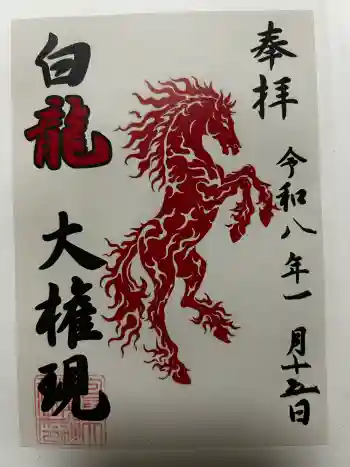 奉拝
令和八年一月十五日
白龍大権現